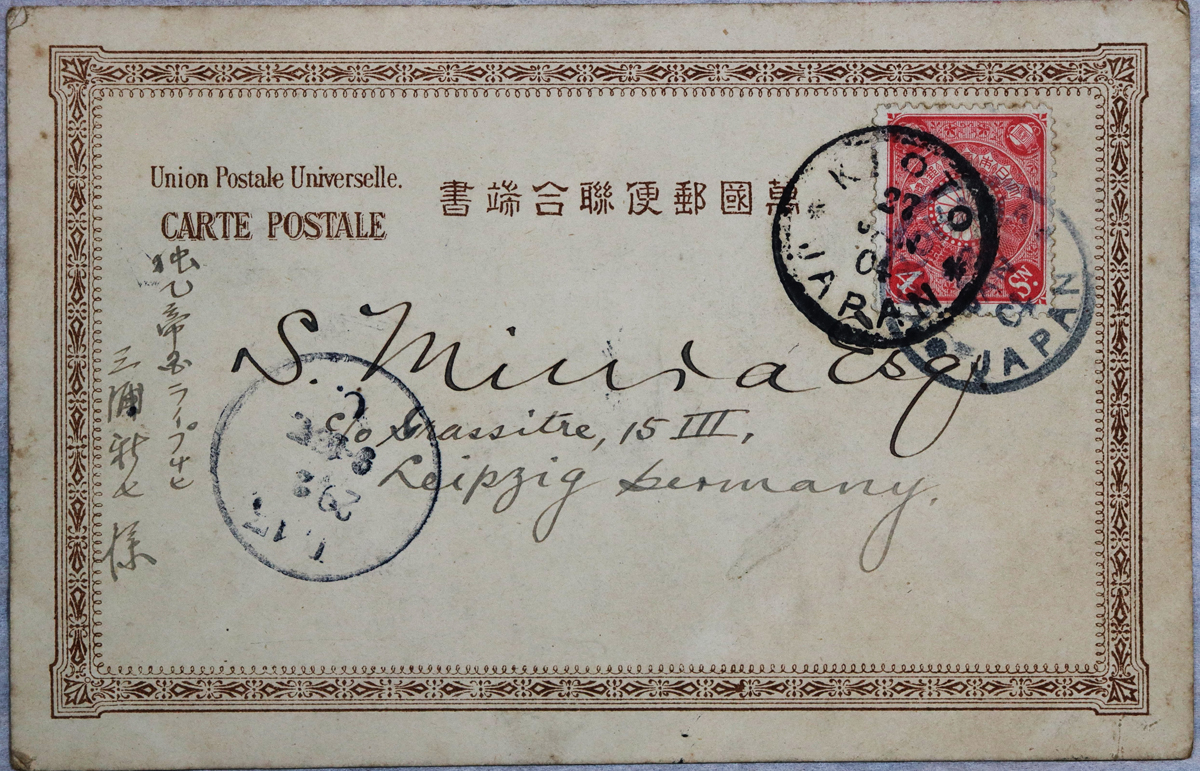 Union Postale Universelle.
CARTE POSTALE
書端合聯便郵國萬
KIOTO
27
04
JAPAN
4 Sn.
JAPAN
S. Miura Esq.
c/o Grassistre, 15 III.
Leipzig Germany.
独乙帝国ライプチヒ
三浦新七様